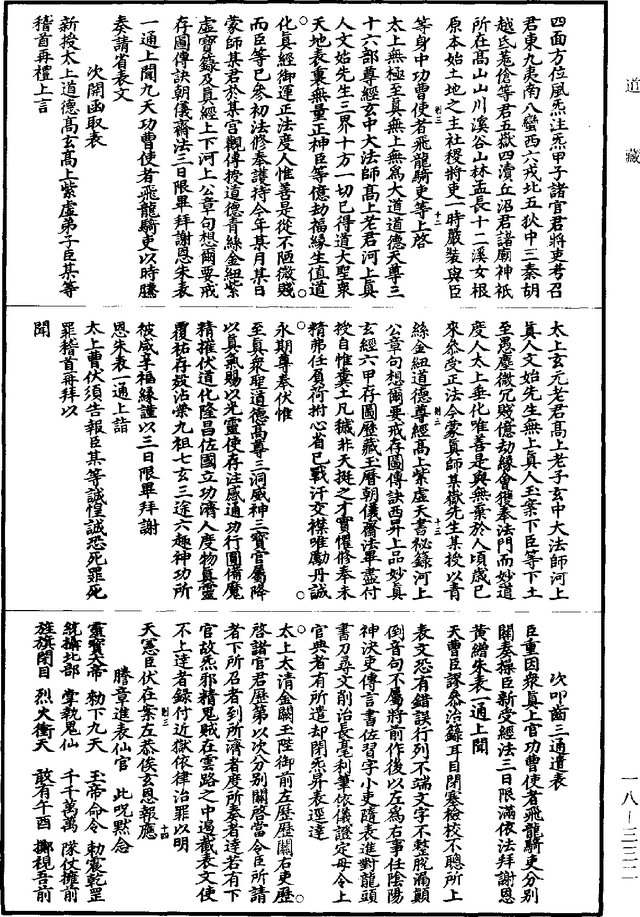 道藏
四面方位風炁注炁甲子諸官君將吏考召
君東九夷南八蠻西六戎北五狄中三秦胡
越氐羗傖等君五嶽四瀆丘沼君諸廟神祇
所在髙山山川溪谷山林孟長十二溪女根
原本始土地之主社稷將吏一時嚴裝與臣
等身中功曹使者飛龍騎吏等上啓
太上無極至真無上無爲大道道德天尊三
十六部尊經玄中大法師髙上老君河上真
人文始先生三界十方一切已得道大聖衆
天地表裏無量正神臣等億劫福緣生值道
化真經御運正法度人惟善是從不陋微賤
而臣等已參初法修奉護持今年某月某日
蒙師某君於某宫觀傳授道德青絲金紐紫
虚寳籙及真經上下河上公章句想爾要戒
存圖傳訣朝儀齋法三日限畢拜謝恩朱表
一通上聞九天功曹使者飛龍騎吏以時騰
奏請省表文
次開函取表
新授太上道德髙玄髙上紫虚弟子臣某等
稽首再禮上言
太上玄元老君髙上老子玄中大法師河上
真人文始先生無上真人玉案下臣等下土
至愚塵微冗賤億劫緣會獲奉法門而妙道
度人太上垂化唯善是與無棄於人頃歲已
來參受正法今蒙真師某嶽先生某授以青
絲金紐道德尊經髙上紫虚天書秘籙河上
公章句想爾要戒存圖傳訣西昇上品妙真
玄經六甲存圖歷藏玉曆朝儀齋法畢盡付
授自惟糞土凡穢非天挺之才實懼修奉未
精弗任負荷拊心省已戰汗交襟唯勵丹誠
永期尊奉伏惟
至真衆聖道德髙尊三洞威神三寳官屬降
以真氣賜以光靈使存注感通功行圓備魔
精摧伏道化隆昌佐國立功濟人度物真靈
覆祐存殁沾榮九祖七玄三途六趣神功所
被咸享福緣謹以三日限畢拜謝
恩朱表一通上詣
太上曹伏須告報臣某等誠惶誠恐死罪死
罪稽首再拜以
聞
次叩齒三通遣表
臣重因衆真上官功曹使者飛龍騎吏分别
關奏操臣新受經法三日限滿依法拜謝恩
黄繒朱表一通上聞
天曹臣謬參治籙耳目閉塞檢校不聰所上
表文恐有錯誤行列不端文字不整脱漏顛
倒音句不屬將前作後以左爲右事任隂陽
神決吏傳言書佐習字小吏隨表進對龍頭
書刀尋文削治長毫利筆依儀證定毋令上
官典者有所遣却閉炁昇表逕達
太上太清金闕玉陛御前左歷歷關右吏歷
啓諸官君歷第以次分别關啓當令臣所請
者下所召者到所濟者度所奏者達若有下
官故炁邪精鬼賊在雲路之中遏截表文使
不上達者録付近獄依律治罪以明
天憲臣伏在案左恭俟玄恩報應
謄章進表仙官　此呪黙念
靈寳天帝　勑下九天　玉帝命令　勑震乾罡
統攝北部　掌執鬼仙　千千萬萬　隊仗擁前
旌旗閉目　烈火衝天　敢有午酉　擲視吾前
一八—三三二